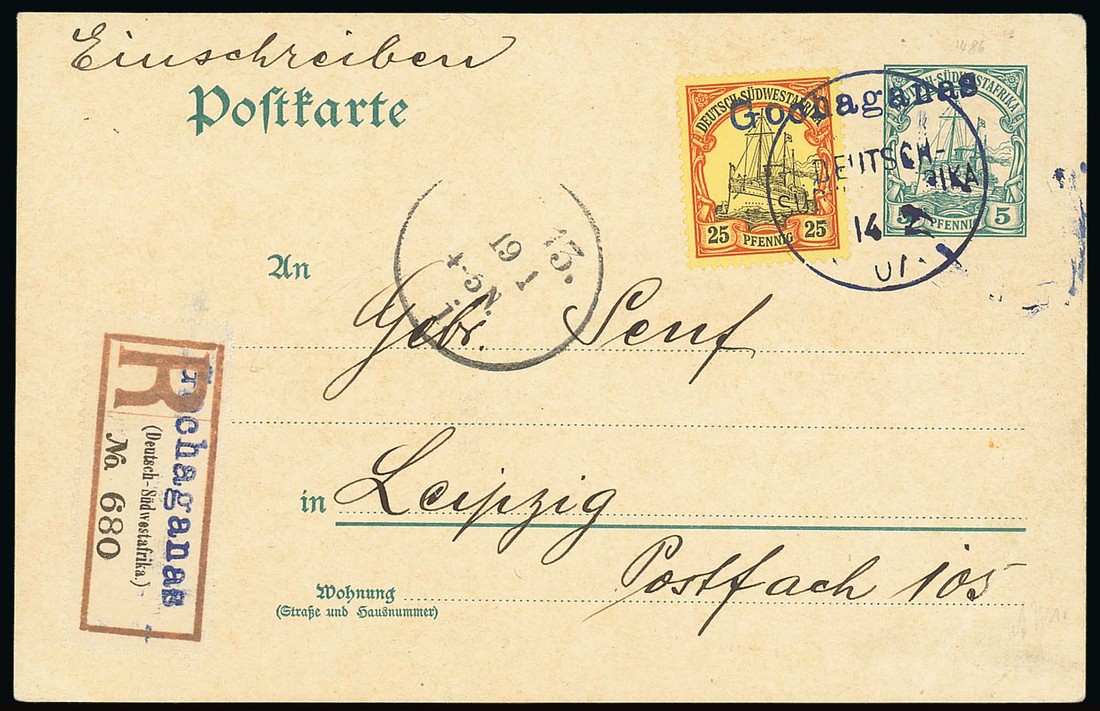 Einschreiben
Postkarte
DEUTSCH-SÜDWESTAFRIKA
25 PFENNIG 25
Gochaganas
DEUTSCH-
14 2
DEUTSCH-SÜDWESTAFRIKA
5 PFENNIG 5
13.
19 1
4-5N.
An
Gebr. Senf
in Leipzig
Postfach 105
Wohnung
(Straße und Hausnummer)
R
Gochaganas
(Deutsch-Südwestafrika.)
No. 680